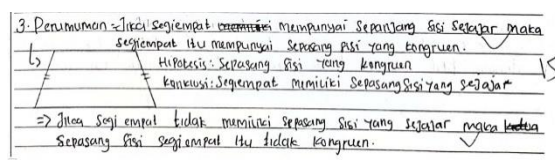 3. Perumuman = Jika segiempat mempunyai sepanjang sisi sejajar maka
segiempat itu mempunyai sepasang sisi yang kongruen.
Hipotesis: Sepasang sisi yang kongruen
Konklusi: Segiempat memiliki sepasang sisi yang sejajar
=> Jika segi empat tidak memiliki sepasang sisi yang sejajar maka
sepasang sisi segiempat itu tidak kongruen.